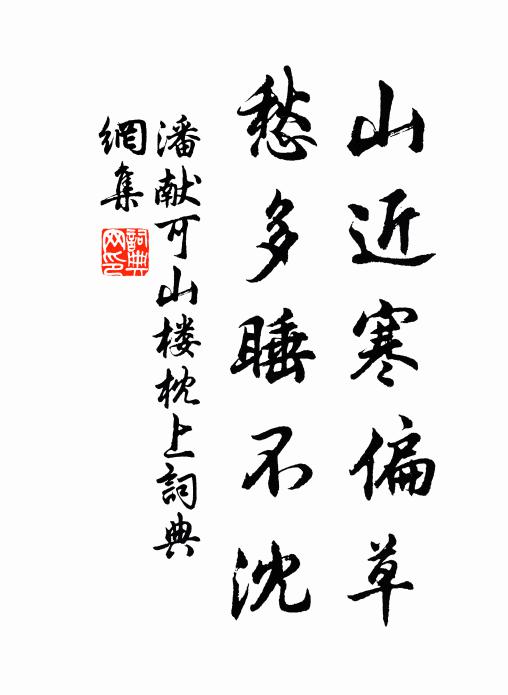 山近寒偏草
愁多睡不沈
潘献可山楼枕上詞典
網集
詞典网印